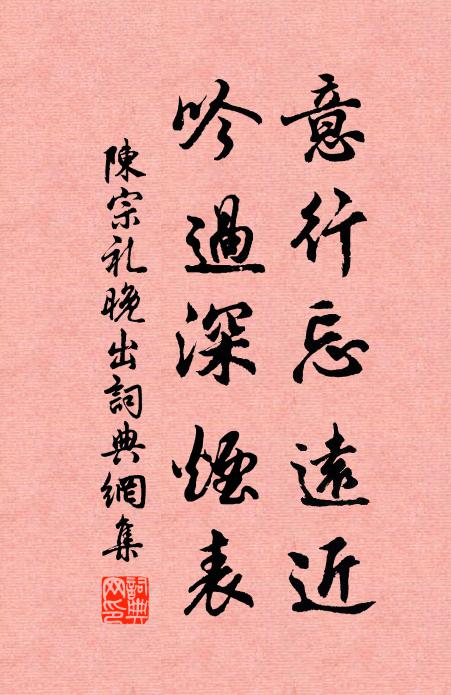 意行忘遠近
吟過深煙表
陳宗礼晚出詞典網集
詞典網印